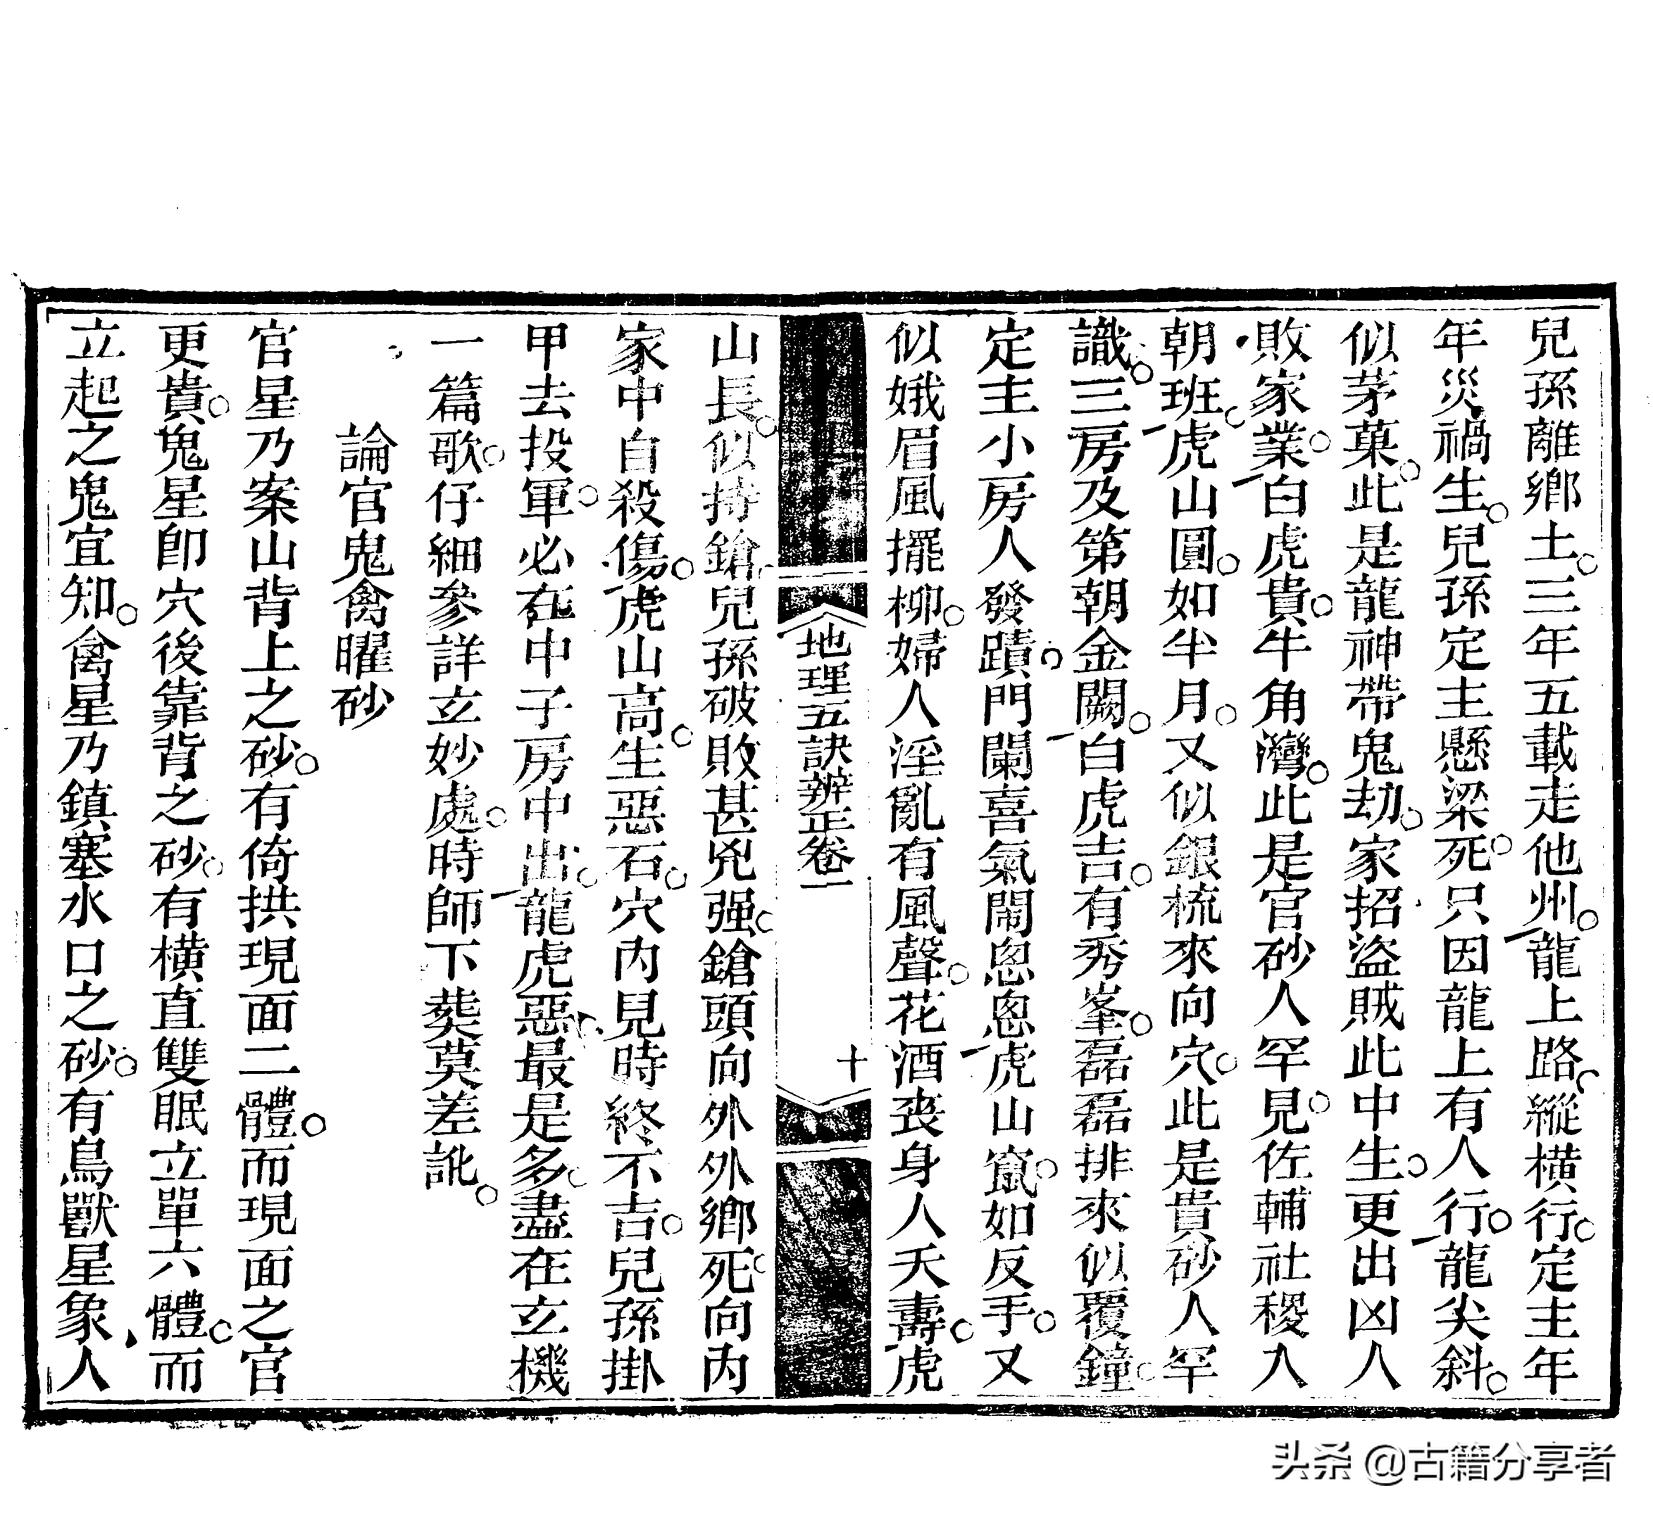 兒孫離鄉土○三年五載走他州○龍上路○縱橫行○定主年
年災禍生○兒孫定主懸梁死○只因龍上有人行○龍尖斜○
似茅菓○此是龍神帶鬼劫○家招盜賊此中生○更出凶人
敗家業○白虎貴○牛角灣○此是官砂人罕見○佐輔社稷入
朝班○虎山圓○如半月○又似銀梳來向穴○此是貴砂人罕
識○三房及第朝金闕○白虎吉○有秀峯○磊磊排來似覆鐘○
定主小房人發蹟○門闌喜氣鬧恖恖虎山竄○如反手○又
似娥眉風擺柳○婦人淫亂有風聲○花酒喪身人夭壽○虎
地理五訣辨正卷一
十
山長○似持鎗○兒孫破敗甚兇强○鎗頭向外外鄉死○向內
家中自殺傷○虎山高○生惡石○穴內見時終不吉○兒孫掛
甲去投軍○必在中子房中出○龍虎惡○最是多○盡在玄機
一篇歌○仔細參詳玄妙處○時師下葬莫差訛○
論官鬼禽曜砂
官星乃案山背上之砂○有倚拱現面二體○而現面之官
更貴○鬼星卽穴後靠背之砂○有橫直雙眠立單六體○而
立起之鬼宜知○禽星乃鎮塞水口之砂○有鳥獸星象人
头条 @古籍分享者